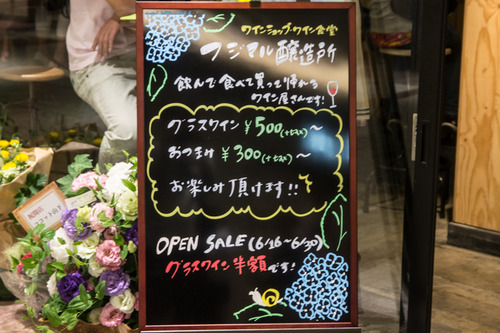 ワインショップ・ワイン食堂
フジマル醸造所
飲んで食べて買って帰れる
ワイン屋さんです!
グラスワイン ¥500(+tax)~
おつまみ ¥300(+tax)~
お楽しみ頂けます!!
OPEN SALE (6/16~6/30)
グラスワイン半額です!